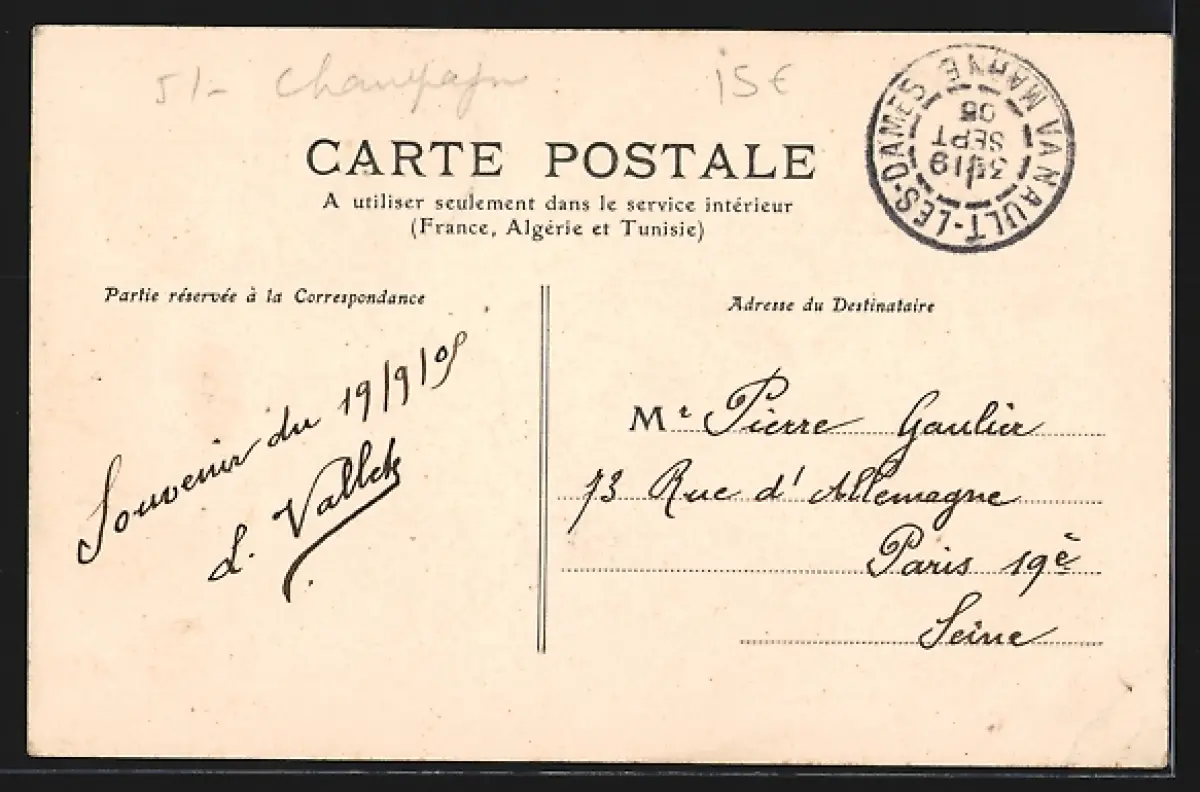 51- Champagn
15€
CARTE POSTALE
A utiliser seulement dans le service intérieur
(France, Algérie et Tunisie)
VANAULT-LES-DAMES
MARNE
19
SEPT
05
Partie réservée à la Correspondance
Souvenir du 19/9/05
L. Vallet
Adresse du Destinataire
Mr Pierre Gaulier
73 Rue d'Allemagne
Paris 19è
Seine